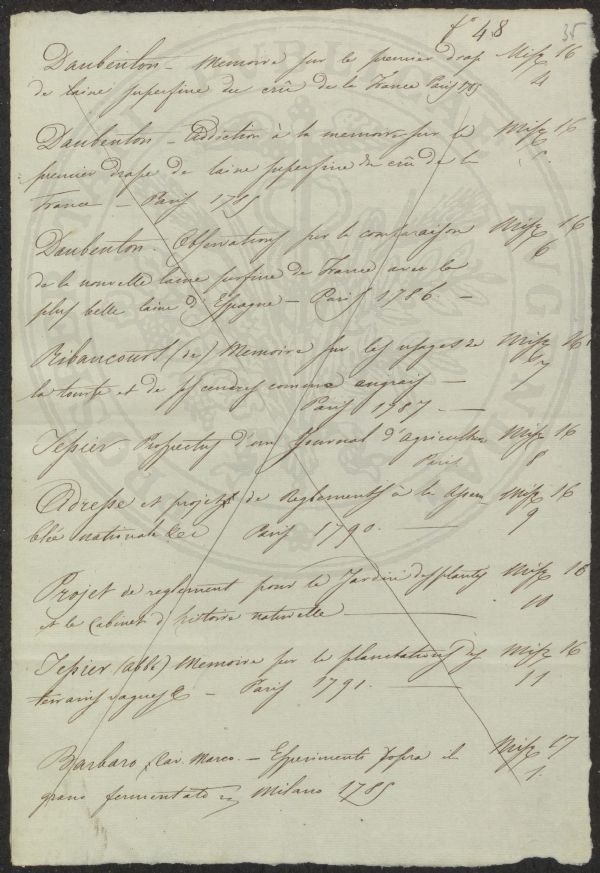 f° 48 35
Daubenton - Memoire sur le premier drap Misc 16
de laine superfine du crû de la France Paris 1785 4
Daubenton - Addiction à la memoire sur le Misc 16
premier drape de laine superfine du crû de la
France - Paris 1785
Daubenton. Observations sur la comparaison Misc 16
de la nouvelle laine surfine de France avec la 6
plus belle laine d'Espagne - Paris 1786. -
Ribaucourt (de) Memoire sur les usages de Misc 16
la tourbe et de ses cendres comme angrais - 7
Paris 1787. -
Tessier. Prospectus d'un Journal d'agriculture Misc 16
Paris 8
Adresse et projet de Reglements à la Assem Misc 16
blée nationale &c Paris 1790. - 9
Projet de reglement pour le Jardin des plantes Misc 16
et le Cabinet d'histoire naturelle - 10
Tessier (abbé) Memoire sur le plantations des Misc 16
terrains vagues & - Paris 1791. - 11
Barbaro, Cav. Marco. - Esperimenti sopra il Misc 17
grano fermentato Milano 1785 1.